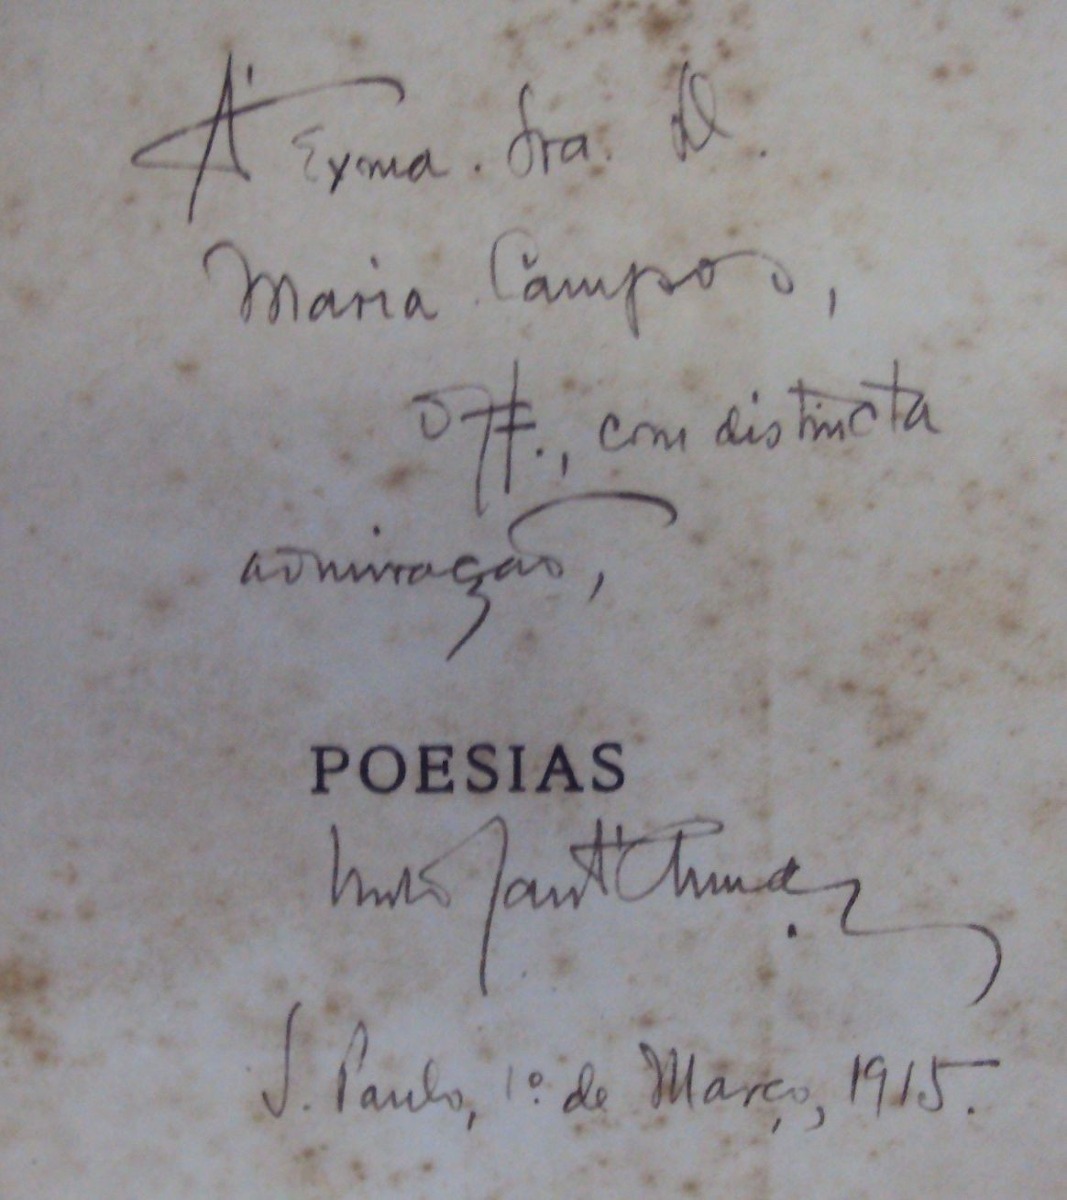 Á Exma. Sra. D.
Maria Campos,
off., com distincta
admiração,
POESIAS
Nuto Sant'Anna
S. Paulo, 1º de Março, 1915.